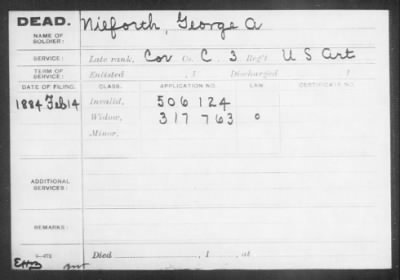 DEAD. Nilforch, George A
NAME OF SOLDIER:
SERVICE: Late rank, Cor Co. C. 3. Reg't U S Art
TERM OF SERVICE: Enlisted , 1 Discharged 1
DATE OF FILING. CLASS. APPLICATION NO. LAW.
1884 Feb 14 Invalid, 506 124
Widow, 317 763 o
Minor,
ADDITIONAL SERVICES:
REMARKS:
Died , 1 , at